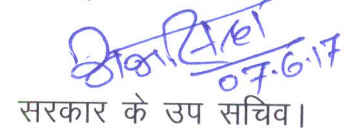 07.6.17
सरकार के उप सचिव।